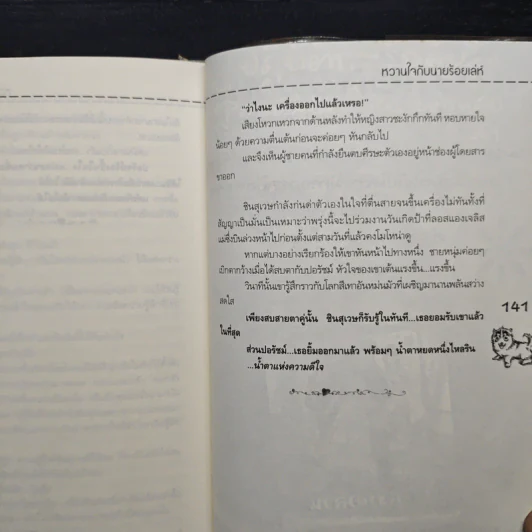 หวานใจกับนายร้อยเล่ห์
"ว่าไงนะ เครื่องออกไปแล้วเหรอ!"
เสียงโหวกเหวกจากด้านหลังทำให้หญิงสาวชะงักกึกทันที หอบหายใจ
น้อยๆ ด้วยความตื่นเต้นก่อนจะค่อยๆ หันกลับไป
และจึงเห็นผู้ชายคนที่กำลังยืนตบศีรษะตัวเองอยู่หน้าช่องผู้โดยสาร
ขาออก
ชินสุเวษกำลังก่นด่าตัวเองในใจที่ตื่นสายจนขึ้นเครื่องไม่ทันทั้งที่
สัญญาเป็นมั่นเป็นเหมาะว่าพรุ่งนี้จะไปร่วมงานวันเกิดป้าที่ลอสแองเจลิส
แม่ซึ่งบินล่วงหน้าไปก่อนตั้งแต่สามวันที่แล้วคงโมโหน่าดู
หากแต่บางอย่างเรียกร้องให้เขาหันหน้าไปทางหนึ่ง ชายหนุ่มค่อยๆ
เบิกตากว้างเมื่อได้สบตากับปอรัชม์ หัวใจของเขาเต้นแรงขึ้น...แรงขึ้น
วินาทีนั้นเขารู้สึกราวกับโลกสีเทาอันหม่นมัวที่เผชิญมานานพลันสว่าง
สดใส
141
เพียงสบสายตาคู่นั้น ชินสุเวษก็รับรู้ในทันที...เธอยอมรับเขาแล้ว
ในที่สุด
ส่วนปอรัชม์...เธอยิ้มออกมาแล้ว พร้อมๆ น้ำตาหยดหนึ่งไหลริน
...น้ำตาแห่งความดีใจ